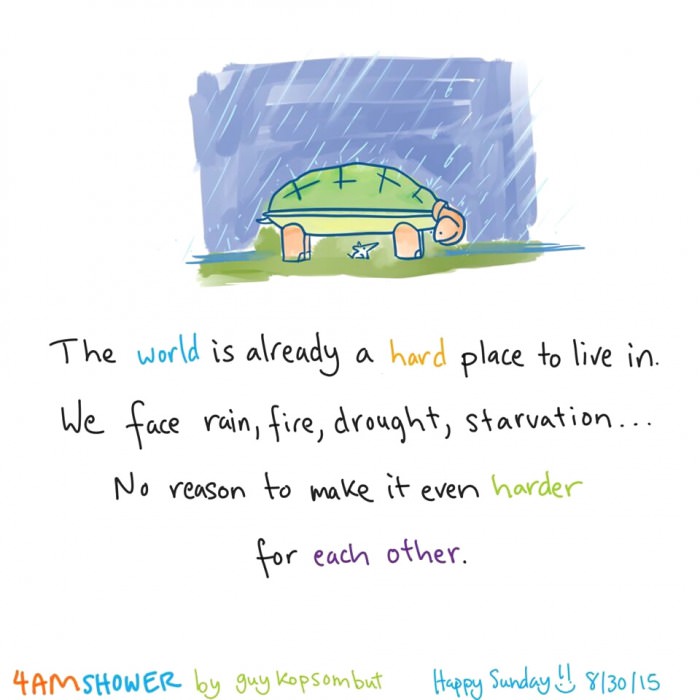 The world is already a hard place to live in.
We face rain, fire, drought, starvation...
No reason to make it even harder
for each other.
4AMSHOWER by guy kopsombut Happy Sunday!! 8/30/15